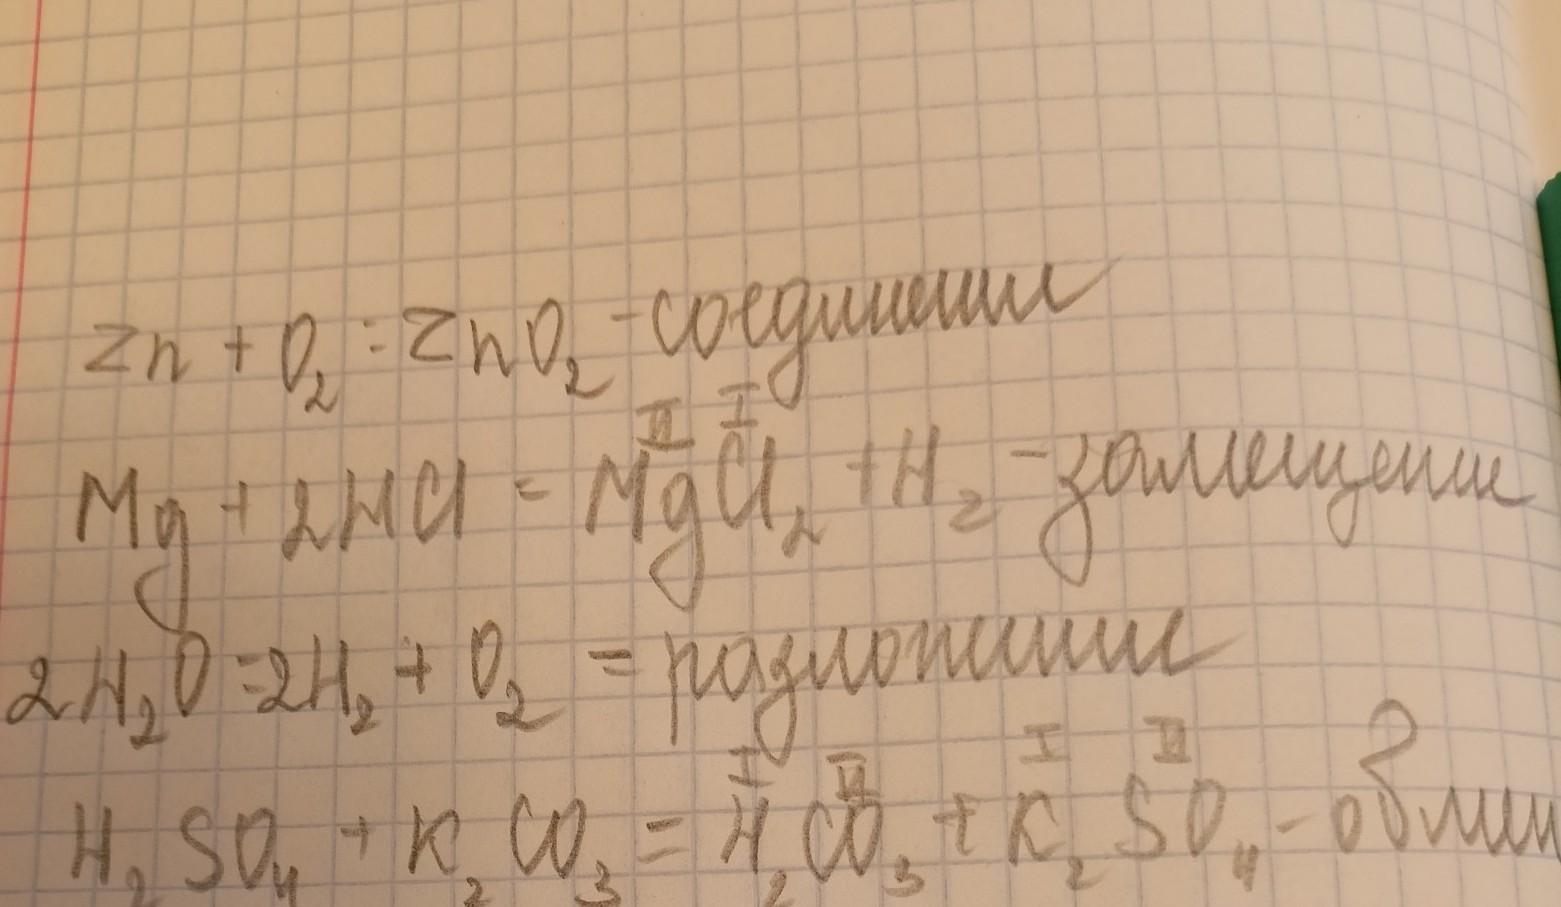 Zn + O₂ = ZnO₂ - соединение
II I
Mg + 2HCl = MgCl₂ + H₂ - замещение
2H₂O = 2H₂ + O₂ = разложение
I II I II
H₂SO₄ + K₂CO₃ = H₂CO₃ + K₂SO₄ - обмен